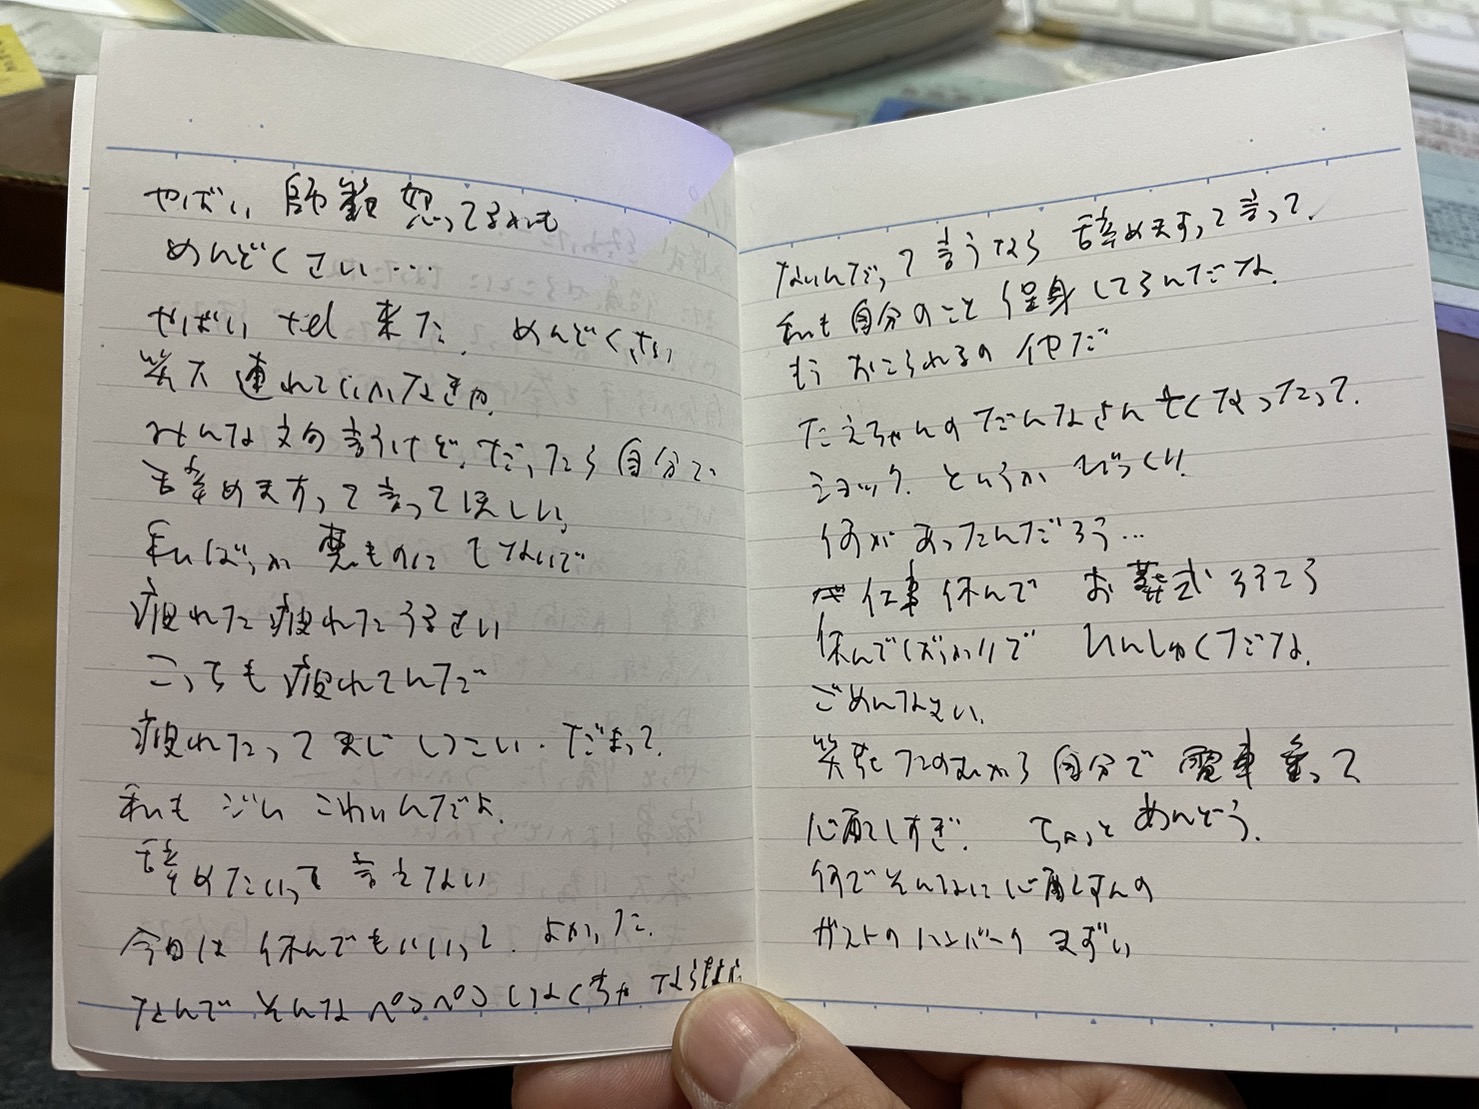 やばい 師範 怒ってるかも
めんどくさい…
やばい tel 来た. めんどくさい
連れていかなきゃ.
みんな文句言うけど、だったら自分で
辞めますって言ってほしい。
私ばっか悪ものにしないで
疲れた疲れたうるさい
こっちも疲れてんだで
疲れたってまじしつこい. だまって.
私も ジム こわいんだよ.
辞めたいって言えない
今日は休んでもいいって. よかった.
なんでそんなペコペコしなくちゃならな
ないんだ,って言うなら 辞めますって言って.
私も自分のこと保身してるんだな.
もうおこられるの他だ
たえちゃんのだんなさん亡くなったって.
ショック. というかびっくり.
何があったんだろう…
仕事休んで お葬式 行こう
休んでばっかりで ひんしゅくだな.
ごめんなさい.
たのむから自分で電車乗って
心配しすぎ. ちょっと めんどう.
何でそんなに心配すんの
ガストのハンバーグ まずい